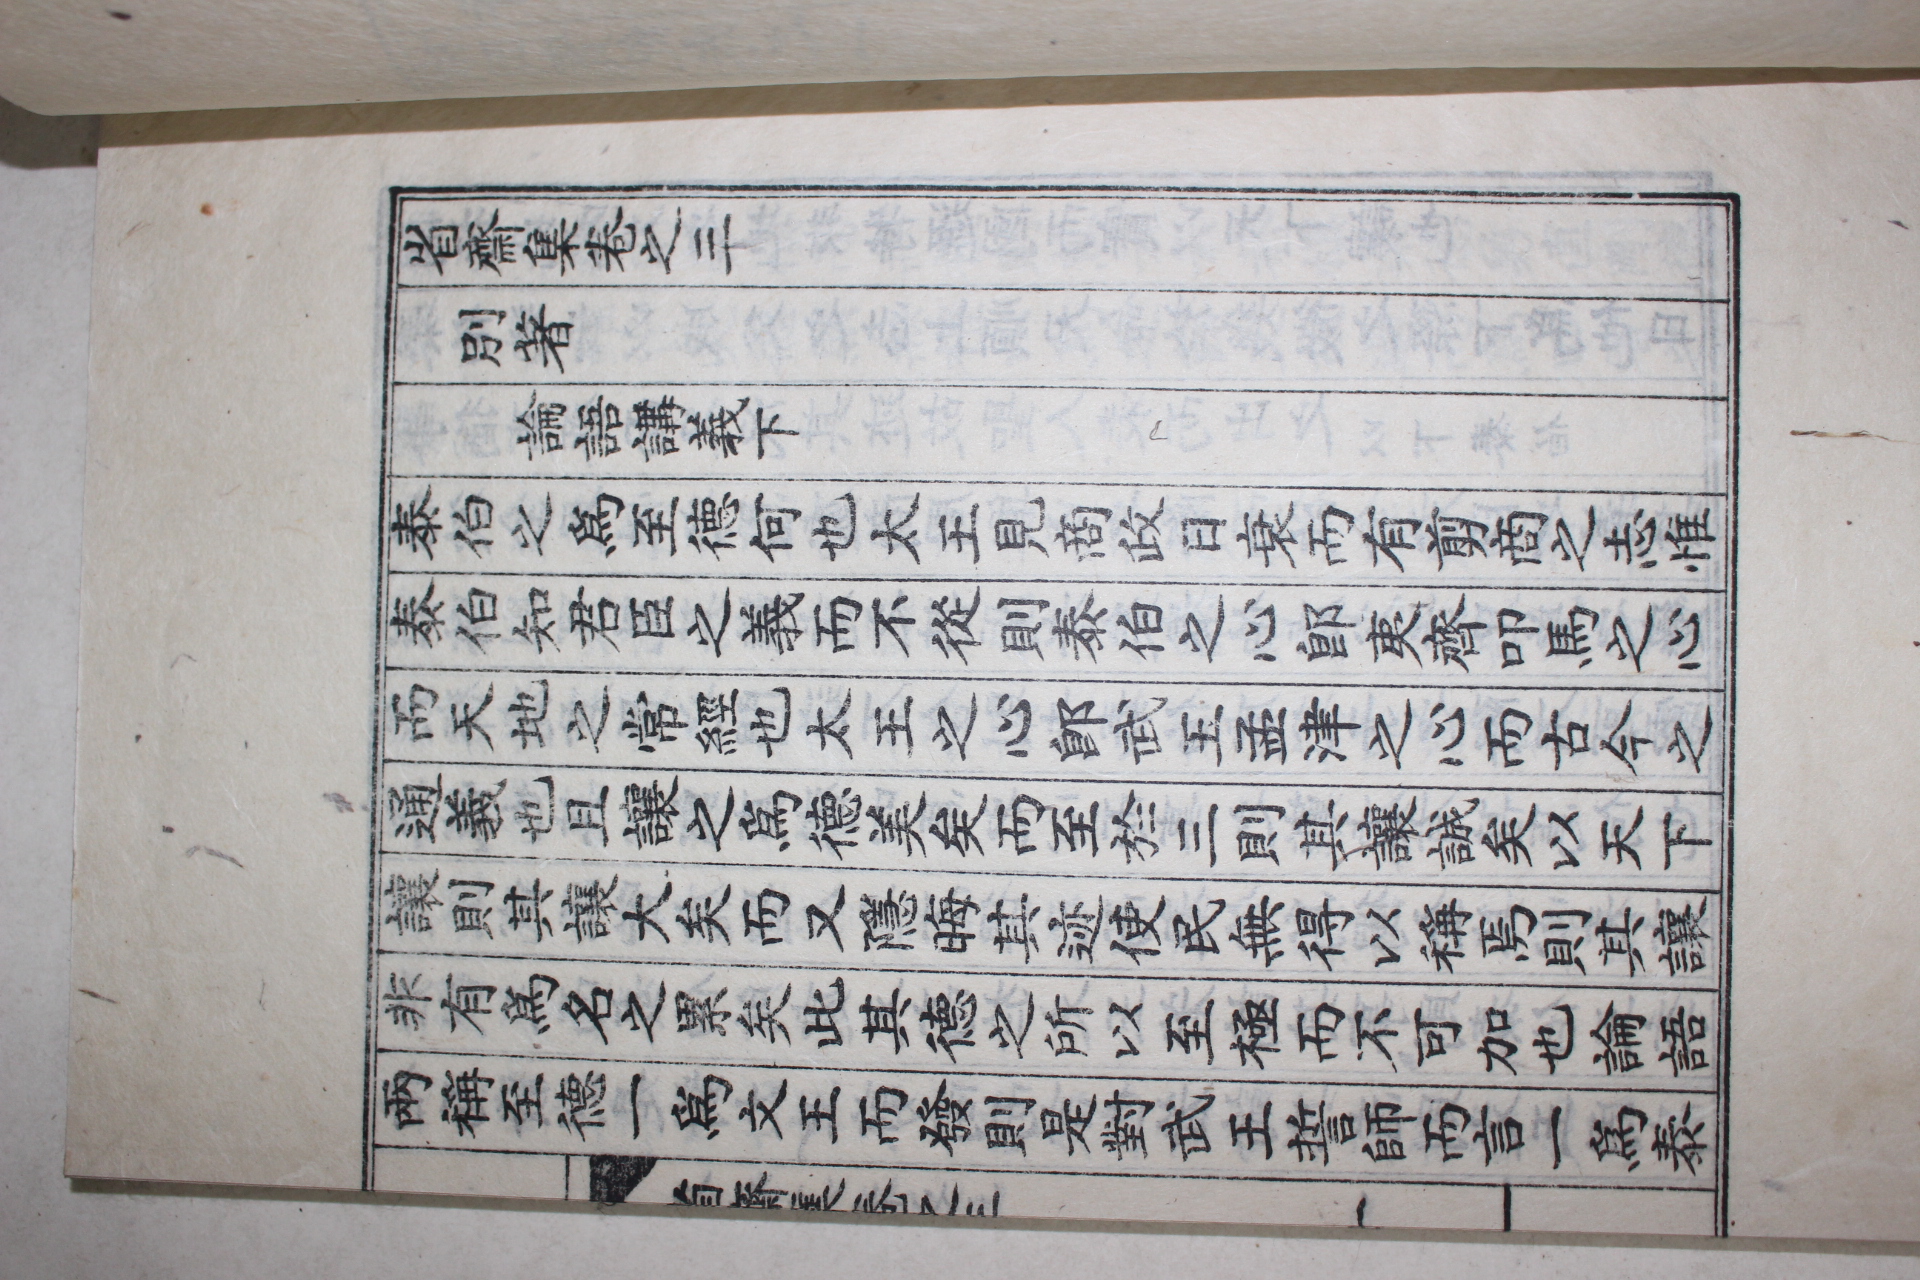 省齋集卷之三
別著
論語講義下
泰伯之爲至德何也太王見商政日衰而有剪商之志惟
泰伯知君臣之義而不從則泰伯之心卽夷齊叩馬之心
而天地之常經也太王之心卽武王孟津之心而古今之
通義也且讓之爲德美矣而至於三則其讓誠矣以天下
讓則其讓大矣而又隱晦其迹使民無得以稱焉則其讓
非有爲名之累矣此其德之所以至極而不可加也論語
兩稱至德一爲文王而發則是對武王誓師而言一爲泰
省齋集卷之三
一